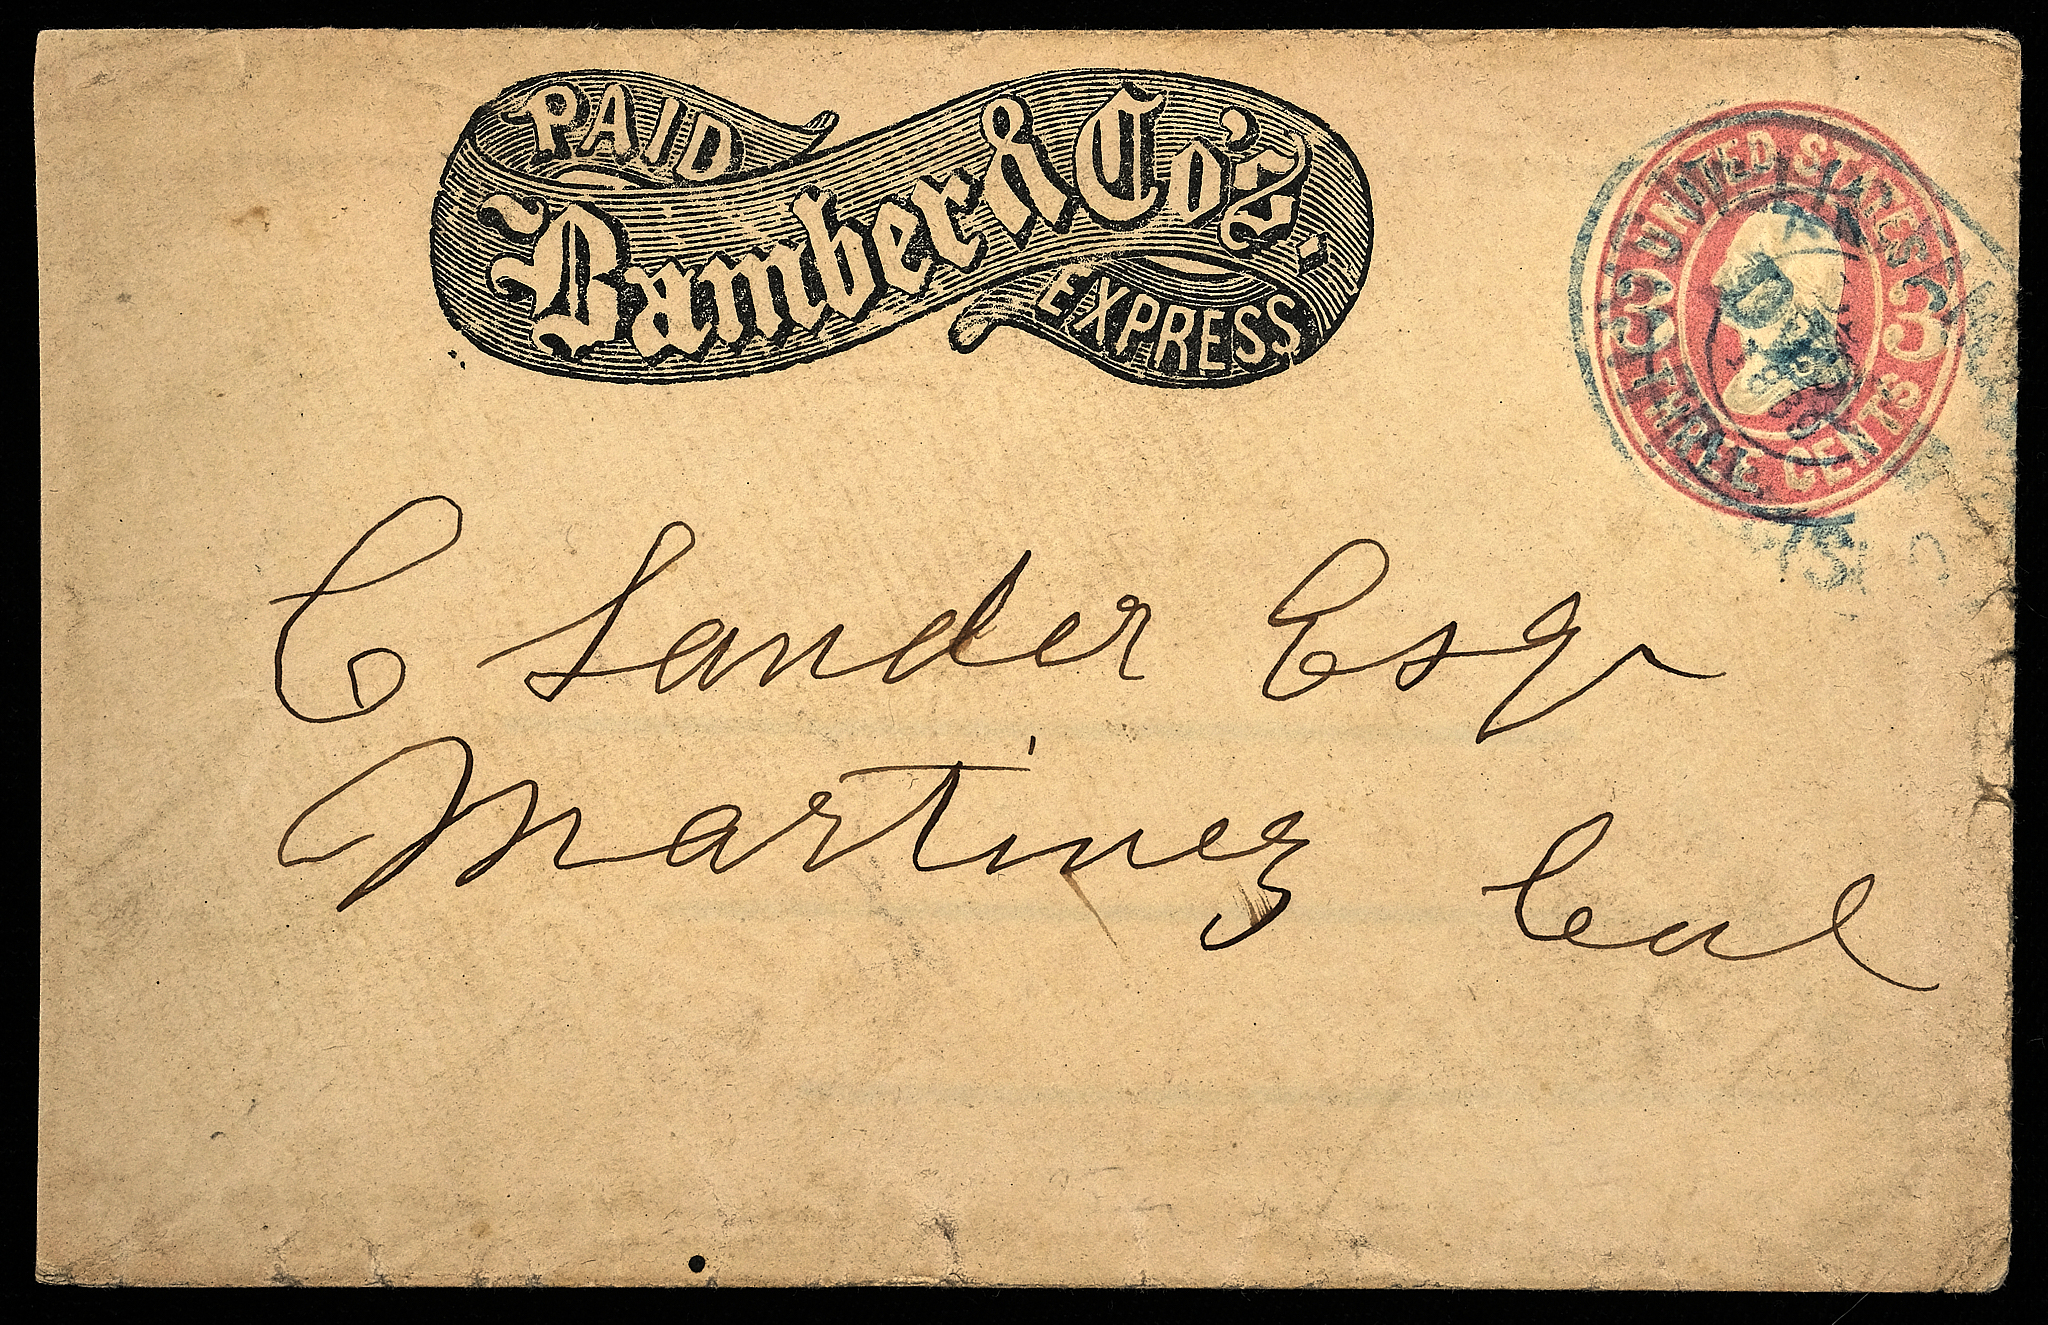 PAID
Bamber & Co's.
EXPRESS
UNITED STATES
3 3
THREE CENTS
C Sander Esqr
Martinez Cal